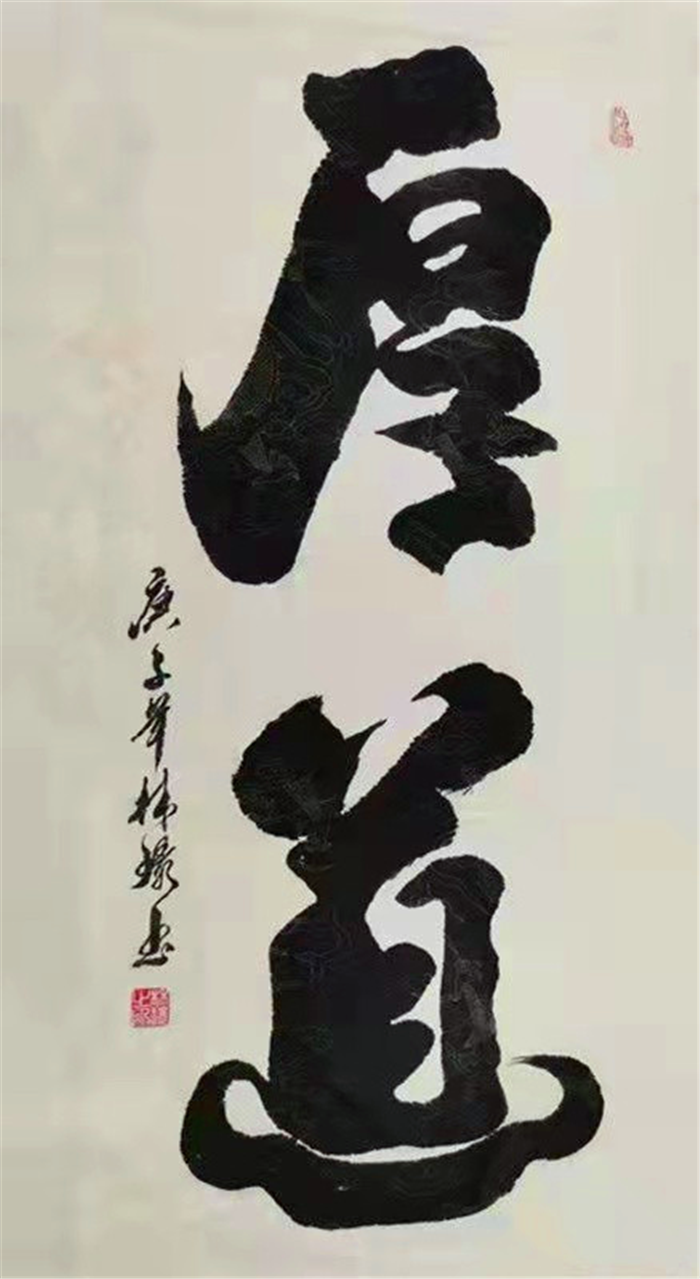 厚道
庚子年林璟书